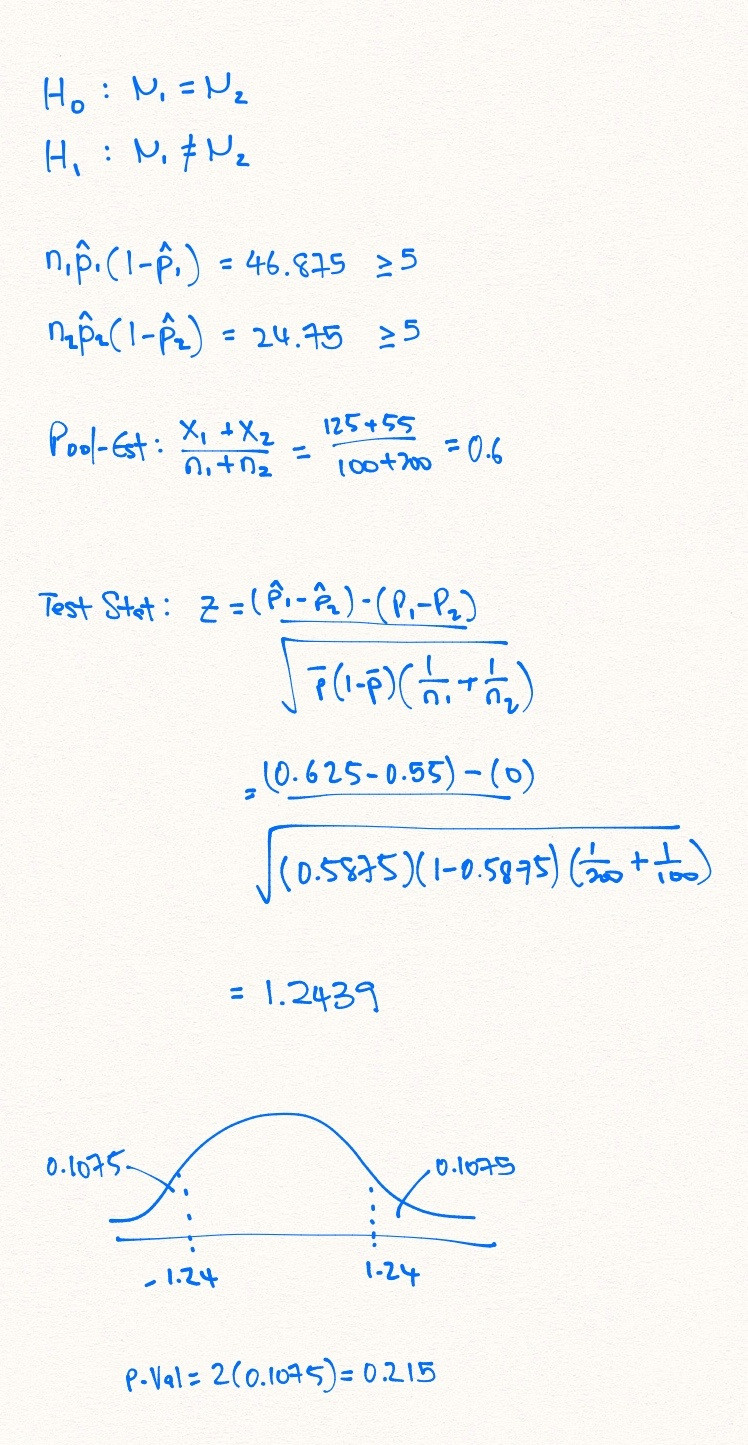 H₀ : μ₁ = μ₂
H₁ : μ₁ ≠ μ₂
n₁p̂₁(1-p̂₁) = 46.875 ≥5
n₂p̂₂(1-p̂₂) = 24.75 ≥5
Pool-Est: (X₁ + X₂)/(n₁ + n₂) = (125+55)/(100+200) = 0.6
Test Stat: Z = ((p̂₁-p̂₂)-(P₁-P₂))/√(p̄(1-p̄)(1/n₁ + 1/n₂))
= ((0.625-0.55)-(0))/√((0.5875)(1-0.5875)(1/200 + 1/100))
= 1.2439
0.1075 0.1075
-1.24 1.24
P-Val = 2(0.1075) = 0.215